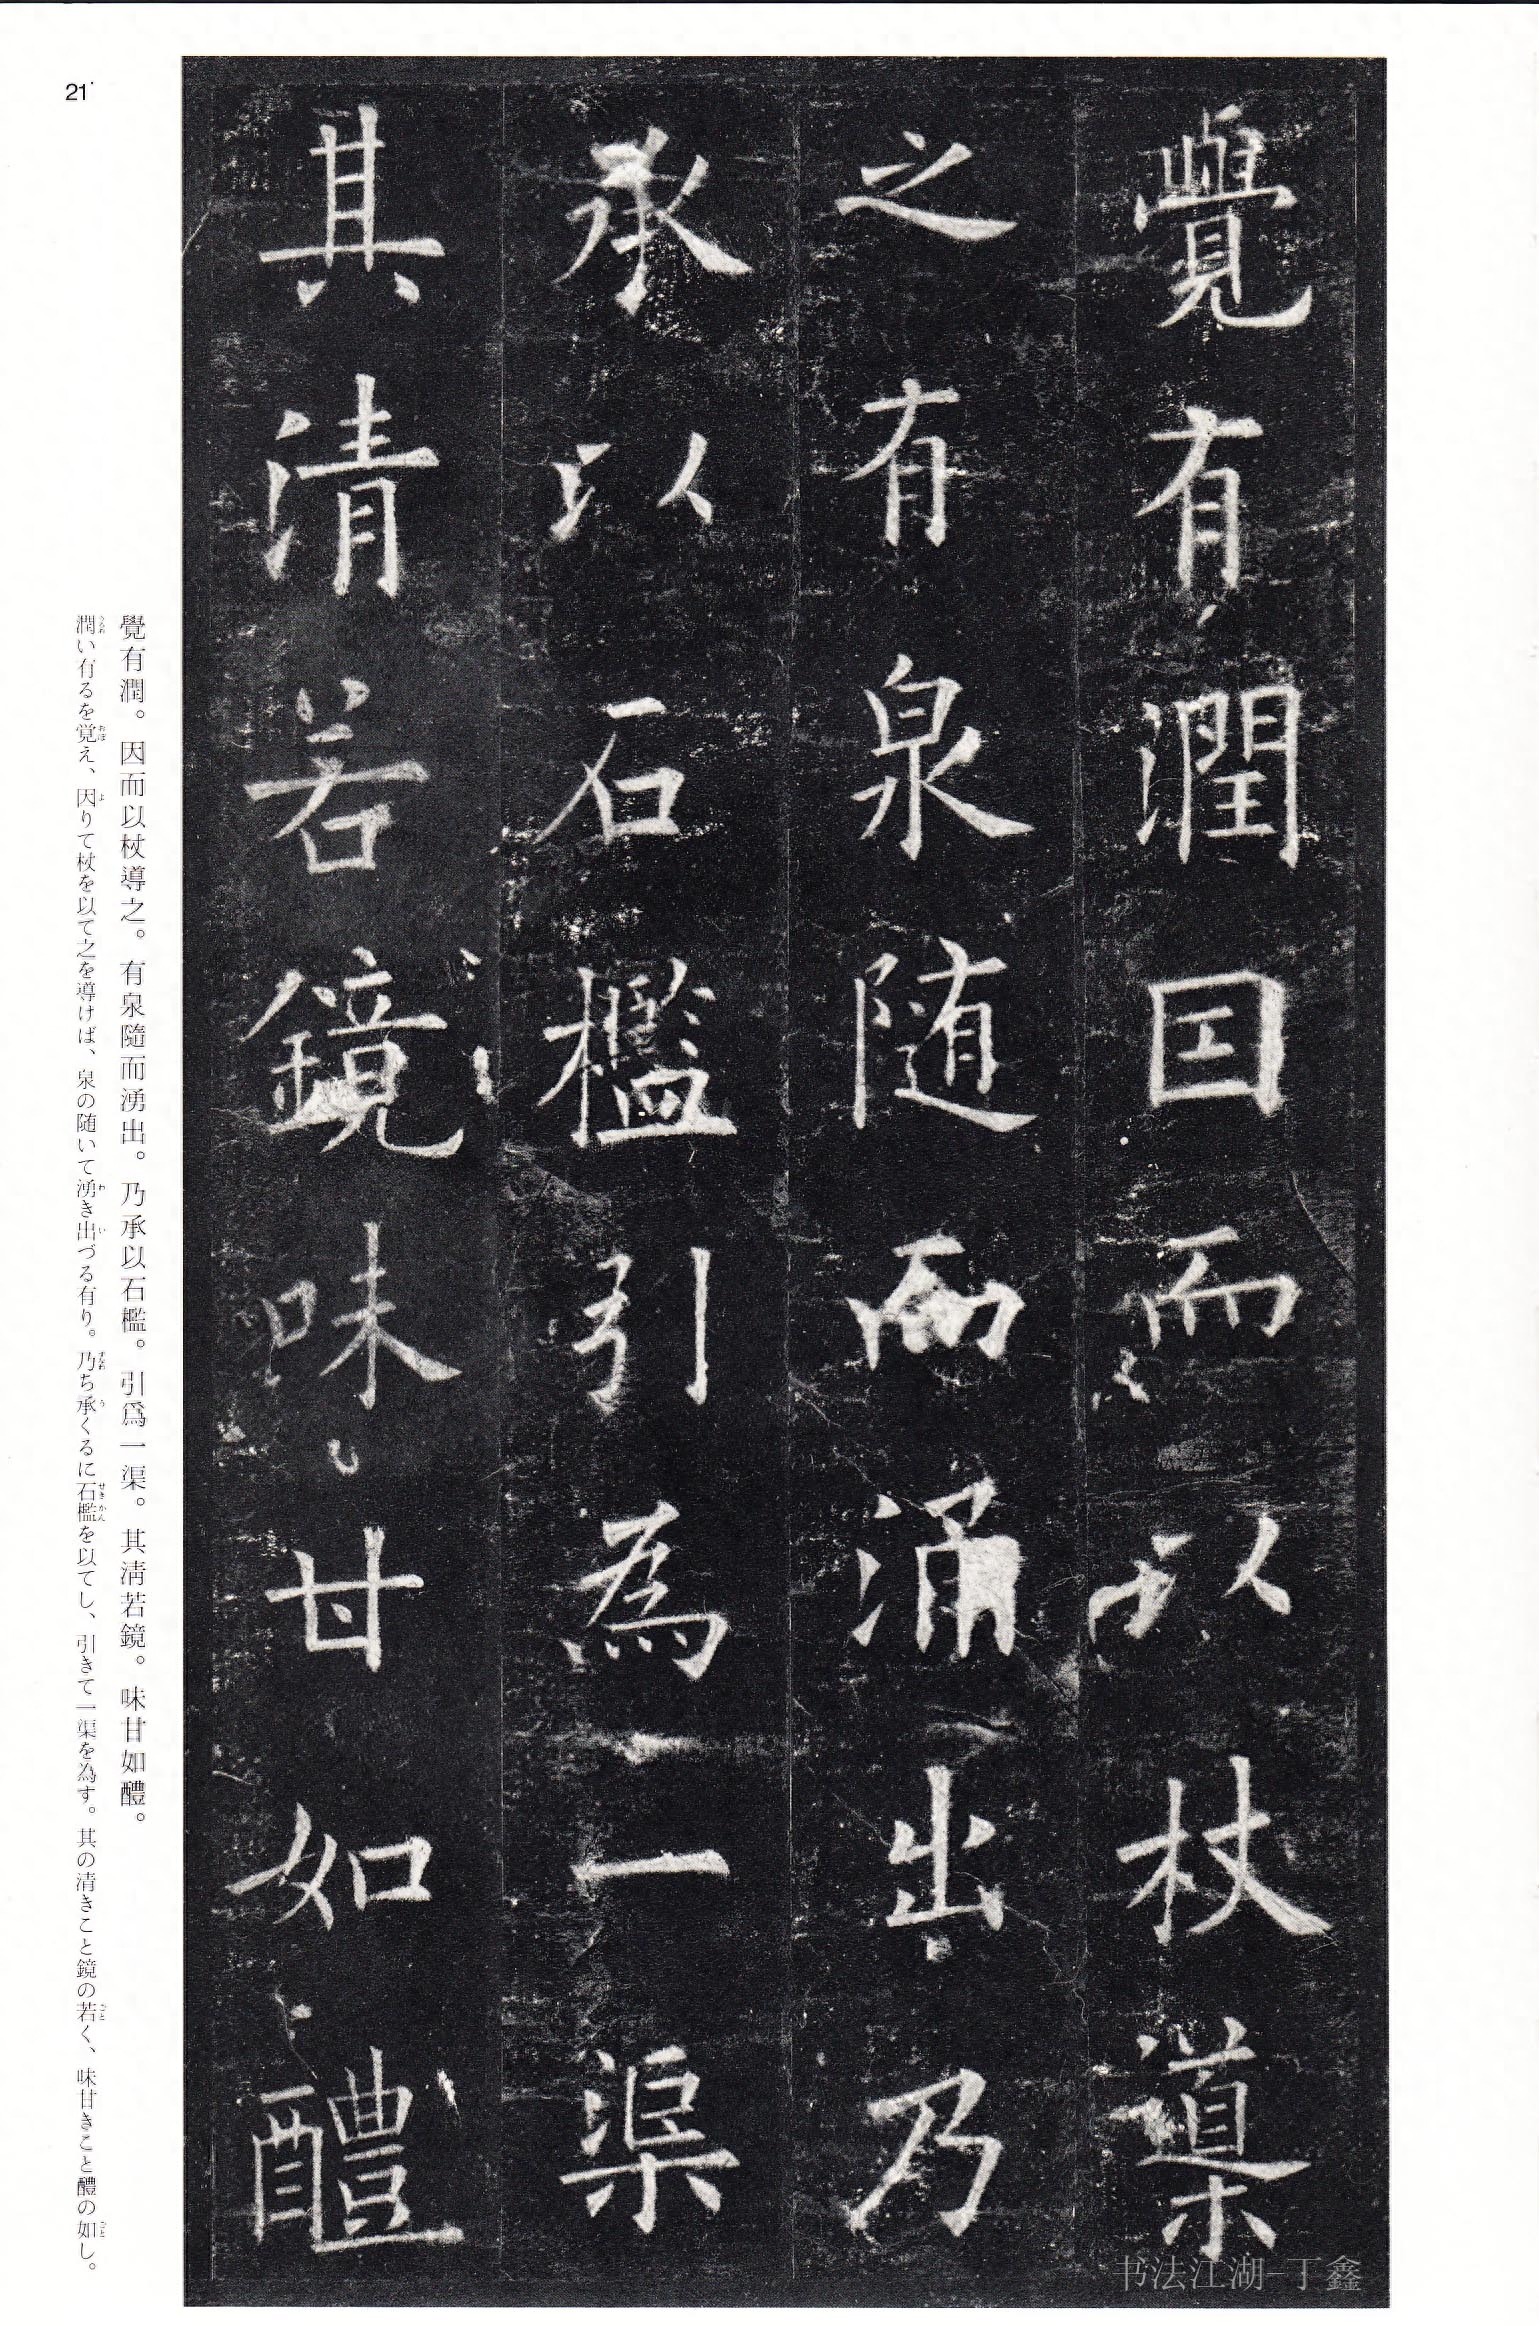 覺有潤因而以杖導
之有泉随而涌出乃
承以石檻引為一渠
其清若鏡味甘如醴
覺有潤。因而以杖導之。有泉隨而湧出。乃承以石檻。引爲一渠。其淸若鏡。味甘如醴。
潤い有るを覚え、因りて杖を以て之を導けば、泉の随いて湧き出づる有り。乃ち承くるに石檻を以てし、引きて一渠を為す。其の清きこと鏡の若く、味甘きこと醴の如し。
21
书法江湖-丁鑫